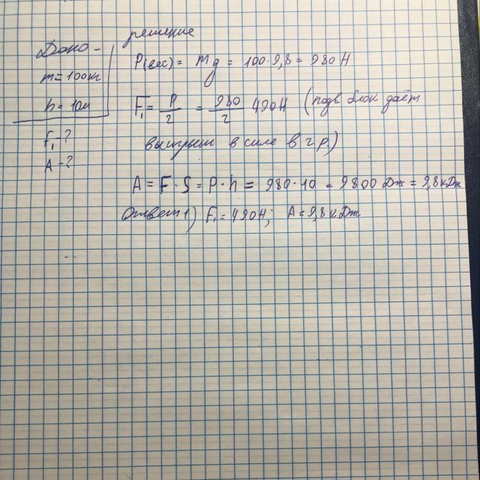 Дано -
m = 100кг
h = 10м
F₁ - ?
A - ?
решение
P(вес) = mg = 100·9,8 = 980 Н
F₁ = P/2 = 980/2 490Н (подв. блок даёт
выигрыш в силе в 2 р.)
A = F·S = P·h = 980·10 = 9800 Дж = 9,8 кДж
Ответ: 1) F₁ = 490Н; A = 9,8 кДж